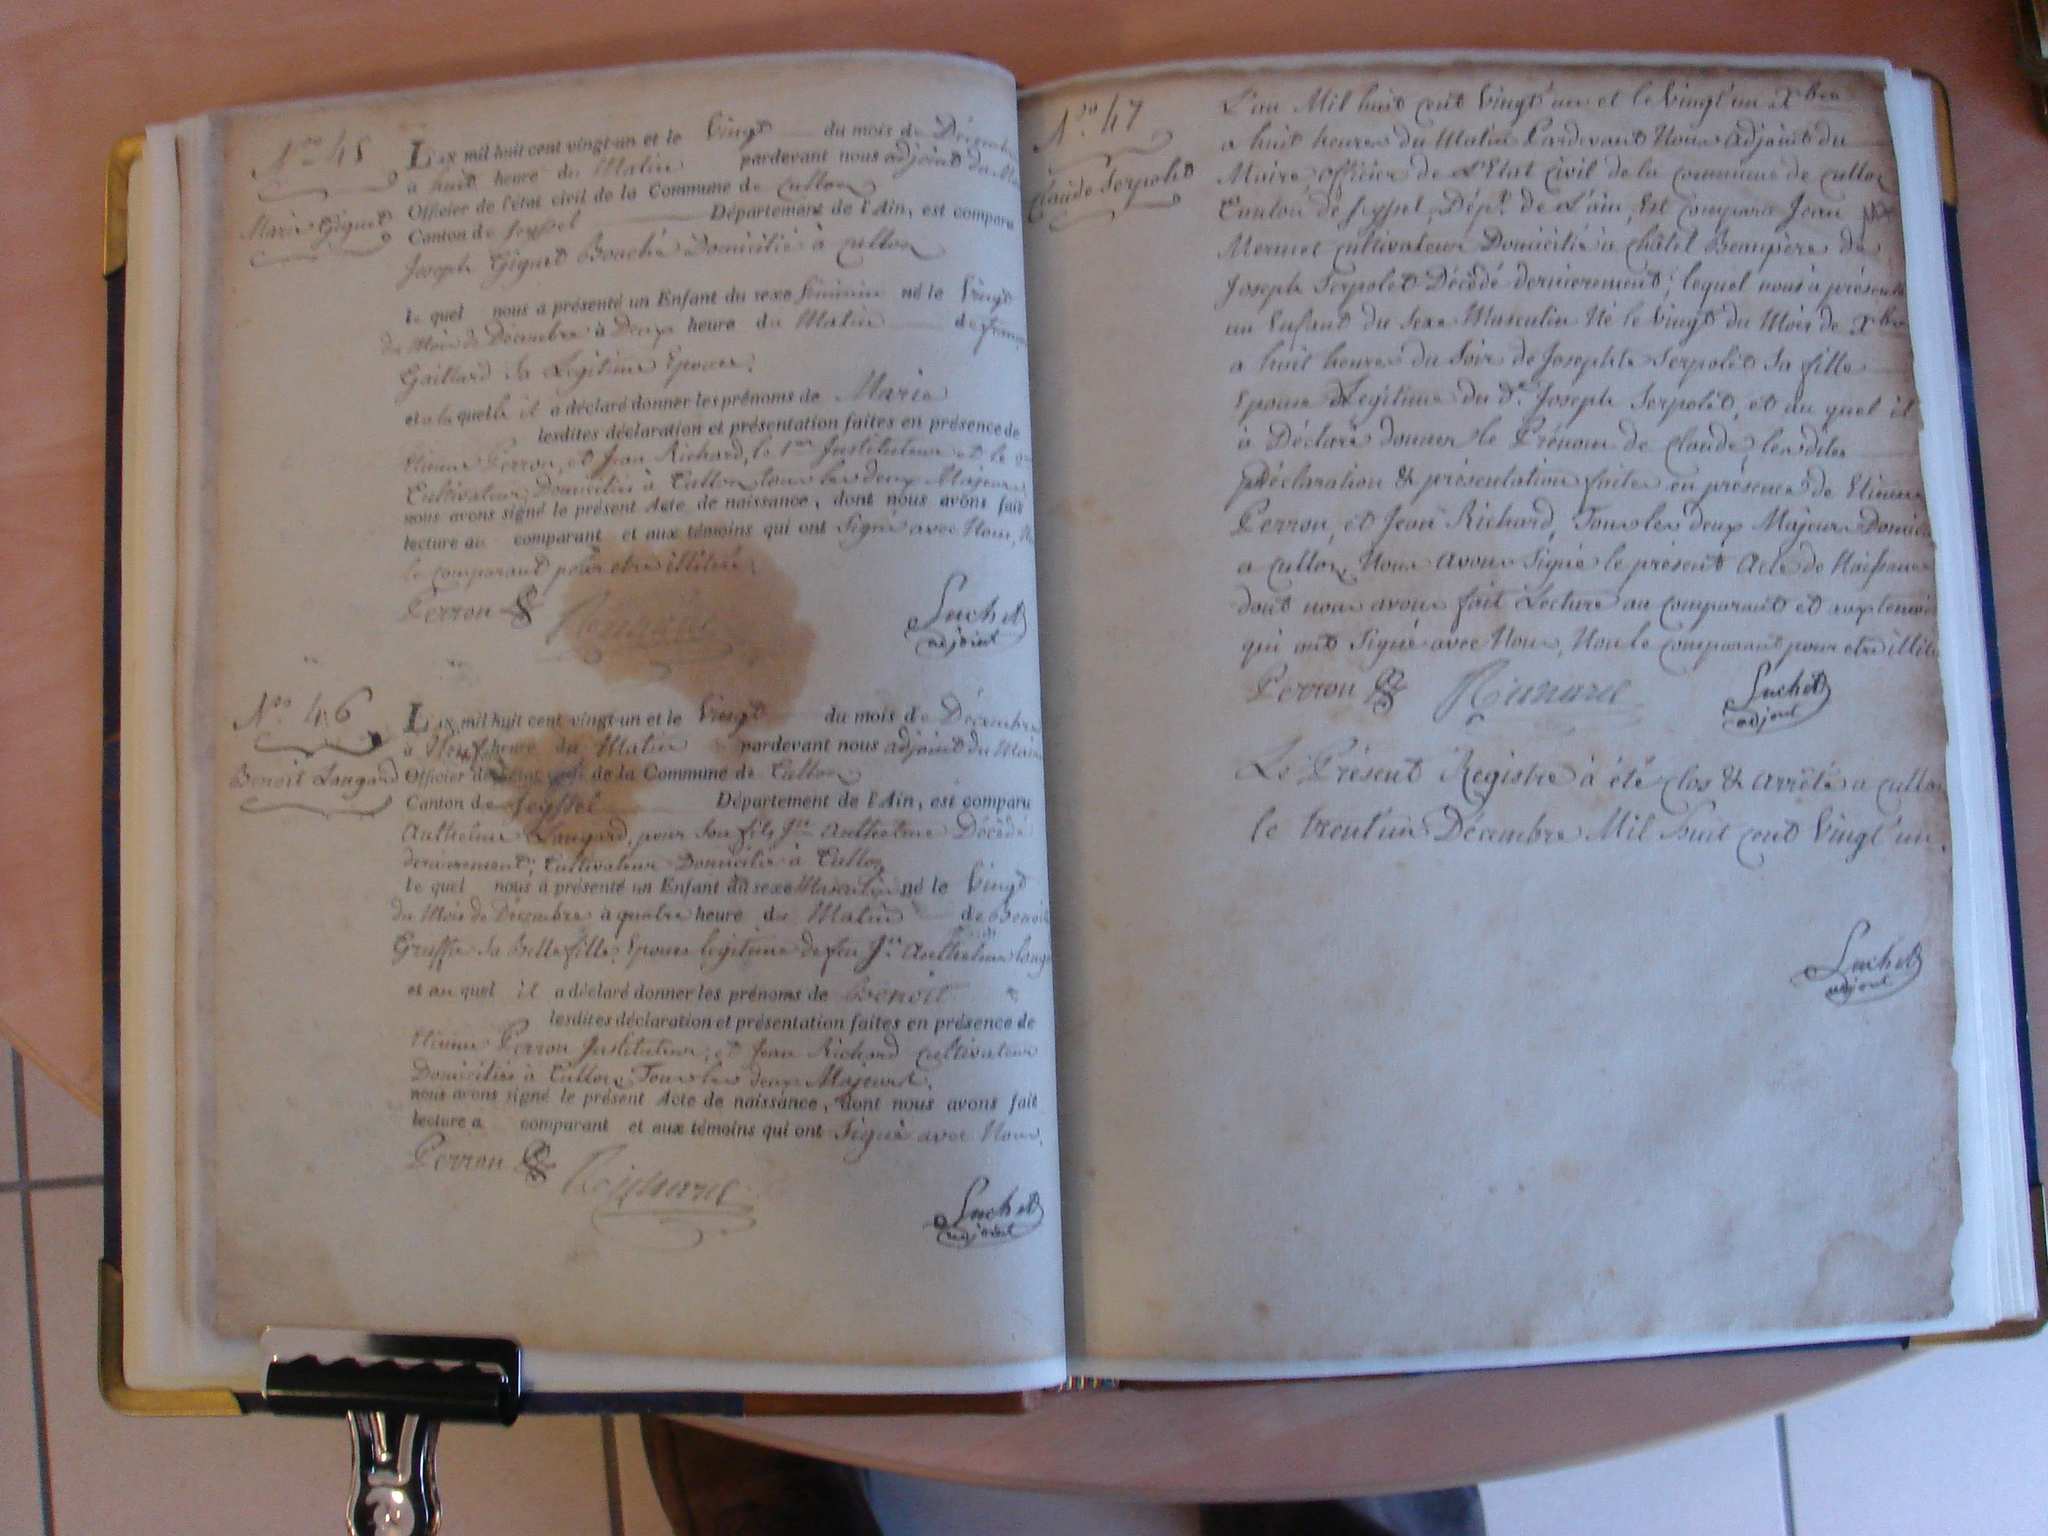 Nro 45
Marie Giguet
L'AN mil huit cent vingt-un et le Vingt du mois de Décembre
à huit heure du Matin pardevant nous adjoint du Maire
Officier de l'état civil de la Commune de Culloz
Canton de Seyssel Département de l'Ain, est comparu
Joseph Giguet Domicilié à Culloz
le quel nous a présenté un Enfant du sexe féminin né le Vingt
du Mois de Décembre à Deux heure du Matin de
Gaillard Sa Légitime Epouse.
et a la quelle il a déclaré donner les prénoms de Marie
lesdites déclaration et présentation faites en présence de
Etienne Perron, et Jean Richard, le 1er Instituteur et le
Cultivateur Domiciliés à Culloz tous les deux Majeurs
nous avons signé le présent Acte de naissance, dont nous avons fait
lecture au comparant et aux témoins qui ont Signé avec Nous,
le comparant pour etre illitéré.
Perron Richard Luchet
adjoint
Nro 46
Benoit Laugard
L'AN mil huit cent vingt-un et le Vingt du mois de Décembre
à Neuf heure du Matin pardevant nous adjoint du Maire
Officier de l'état civil de la Commune de Culloz
Canton de Seyssel Département de l'Ain, est comparu
Anthelme Laugard, pour Son fils Jn Anthelme Décédé
dernierement; Cultivateur Domicilié à Culloz
le quel nous a présenté un Enfant du sexe Masculin né le Vingt
du Mois de Décembre à quatre heure du Matin de Benoite
Sa Belle fille Epouse legitime de feu Jn Anthelme
et au quel il a déclaré donner les prénoms de Benoit
lesdites déclaration et présentation faites en présence de
Etienne Perron Instituteur, et Jean Richard Cultivateur
Domiciliés à Culloz Tous les deux Majeurs.
nous avons signé le présent Acte de naissance, dont nous avons fait
lecture a comparant et aux témoins qui ont Signé avec Nous.
Perron Richard Luchet
adjoint
Nro 47
Claude Serpolet
L'an Mil huit cent Vingt'un et le Vingt'un Xbre
a huit heures du Matin Pardevant Nous Adjoint du
Maire, officier de L'Etat Civil de la commune de Culloz
Canton de Seyssel, Dépt. de L'ain, Est Comparu Jean
Mermet Cultivateur Domicilié à Châtel Beaupère de
Joseph Serpolet Décédé dernierement; lequel nous à présenté
un Enfant du Sexe Masculin Né le Vingt du Mois de Xbre
a huit heures du Soir de Josephte Serpolet Sa fille
Epouse Légitime du dt. Joseph Serpolet, et au quel il
à Déclaré donner le Prénom de Claude, les dites
Déclaration & présentation faites en présence de Etienne
Perron, et Jean Richard, Tous les deux Majeurs
a Culloz, Nous avons Signé le présent Acte de Naissance
dont nous avons fait Lecture au comparant et aux temoins
qui ont Signé avec Nous, Non le comparant pour etre
Perron Richard Luchet
adjoint
Le Présent Registre à été clos & arrêté a Culloz
le trent'un Décembre Mil huit cent Vingt'un.
Luchet
adjoint